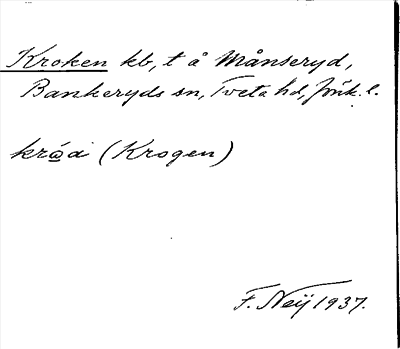 Kroken kb, t å Månseryd,
Bankeryds sn, Tveta hd, Jönk. l.
(Krogen)
F. Neij 1937.